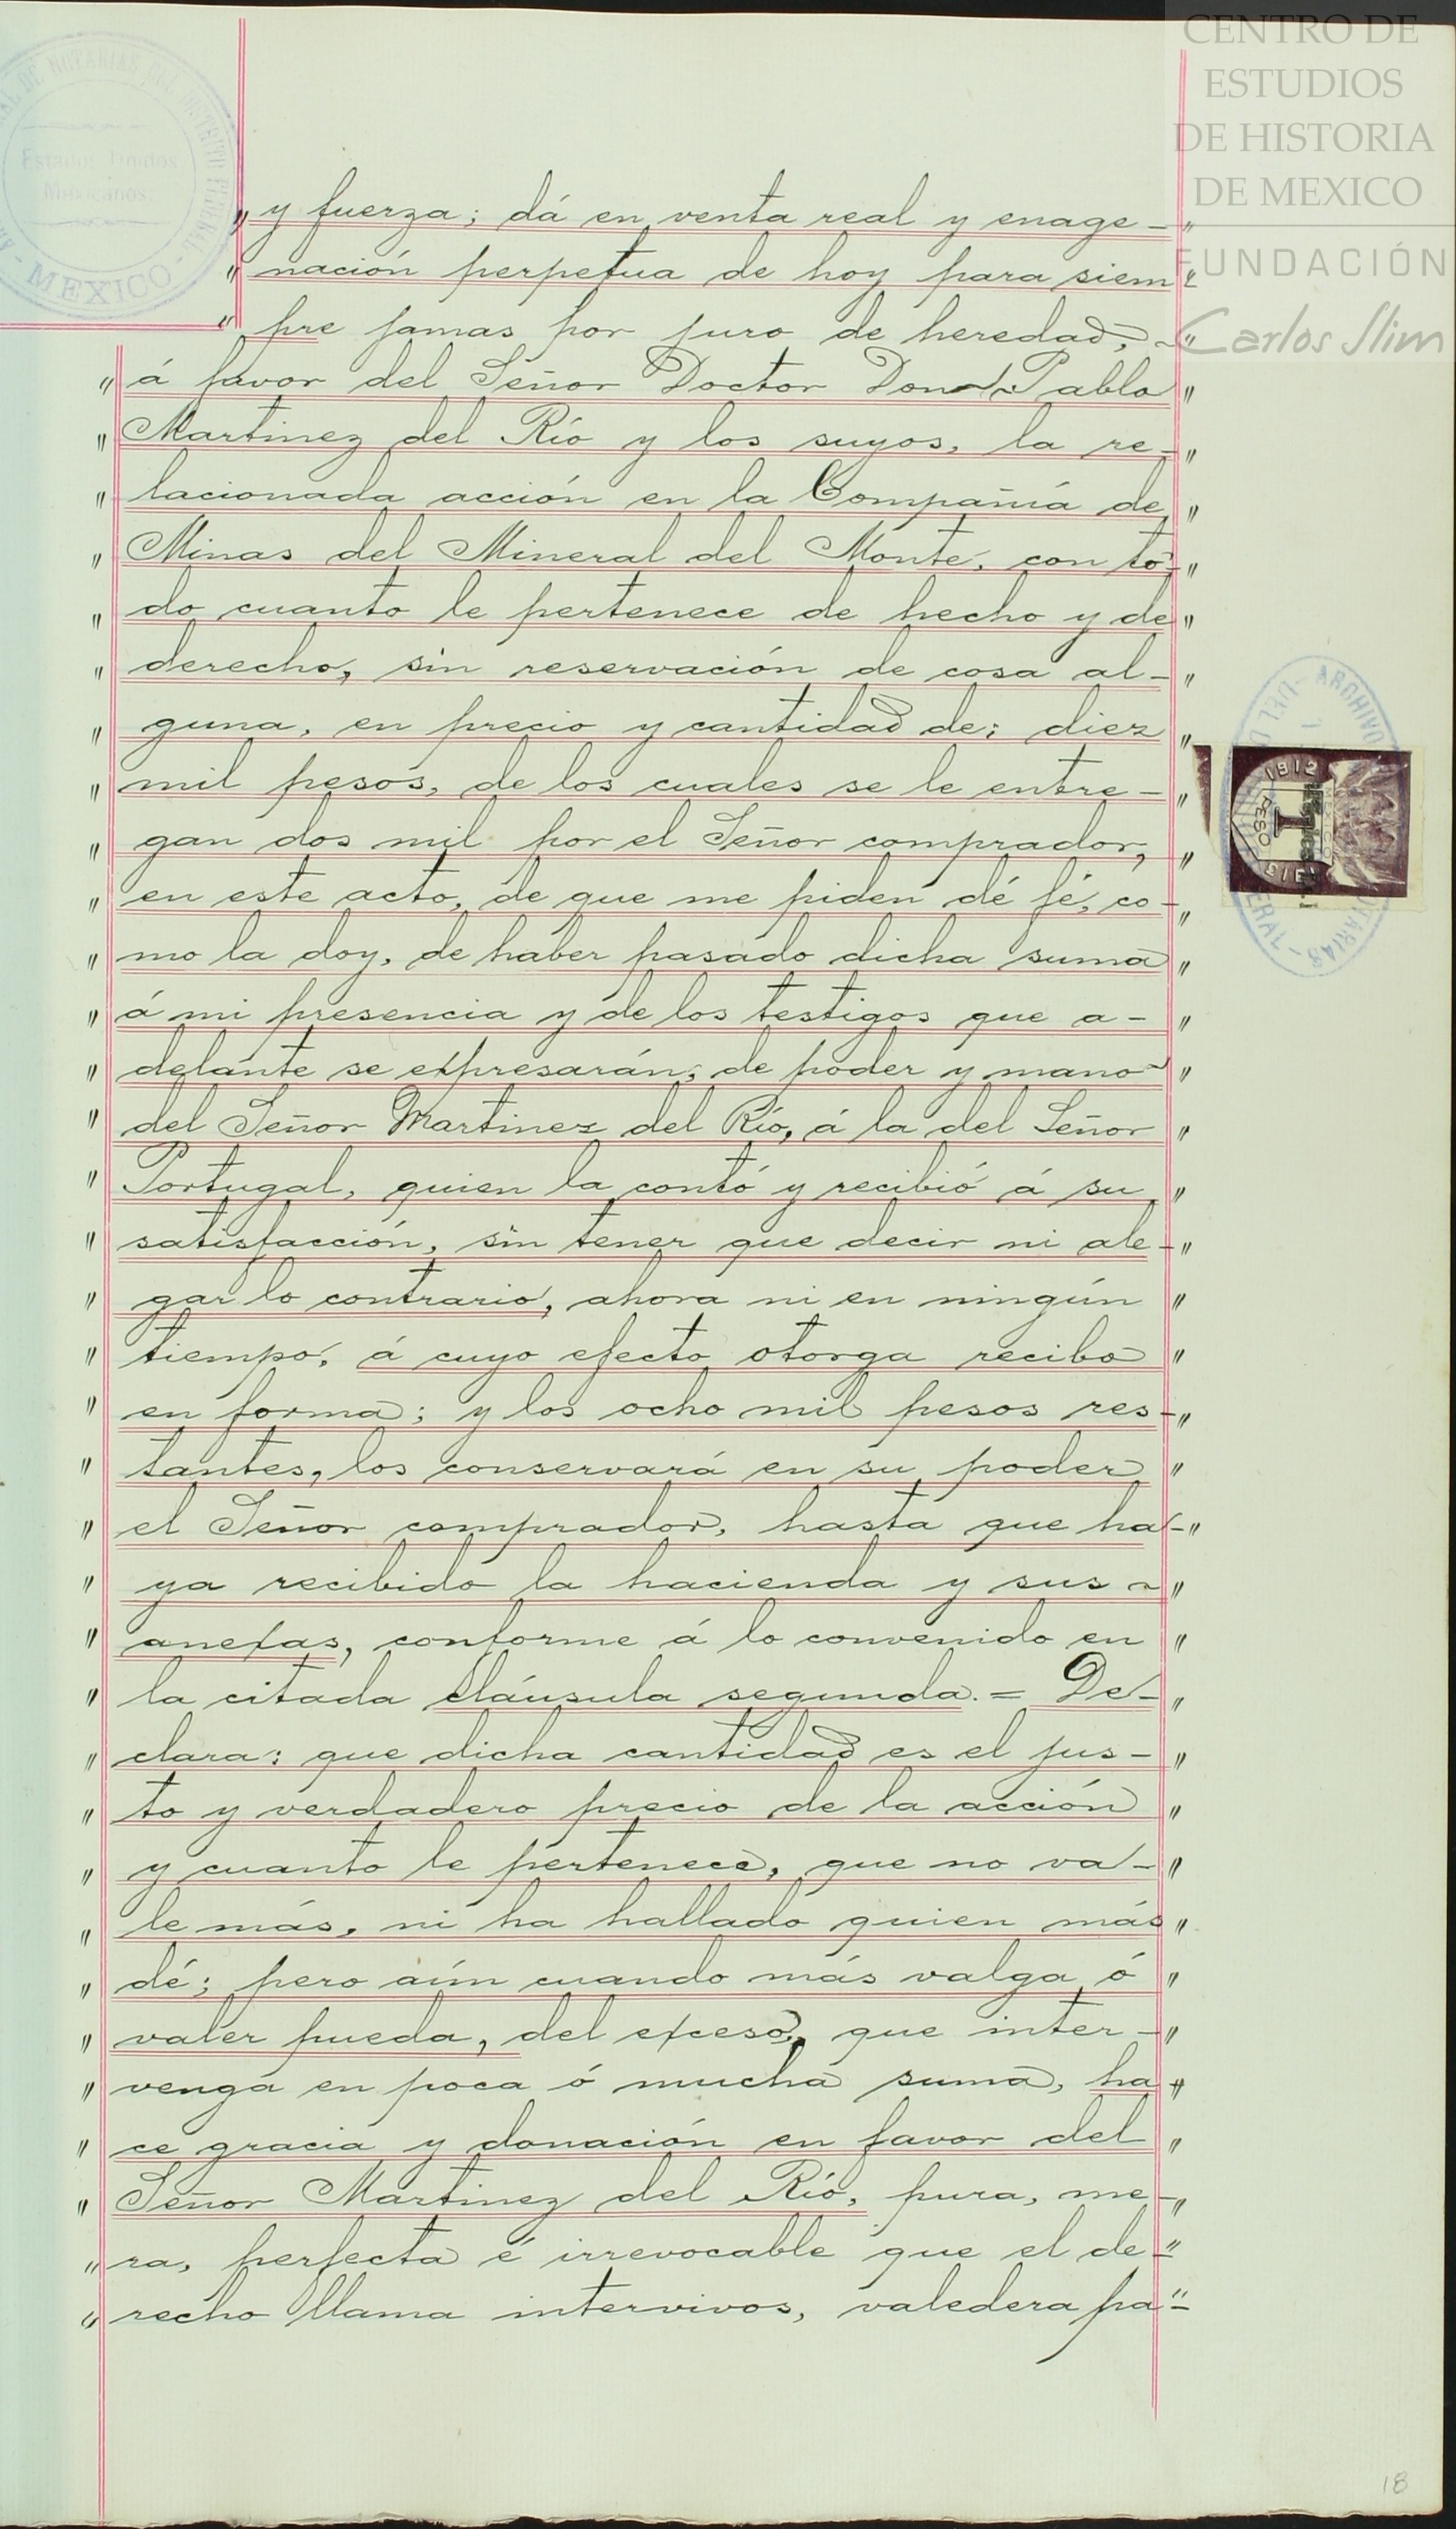 CENTRO DE
ESTUDIOS
DE HISTORIA
DE MEXICO
FUNDACIÓN
Carlos Slim
Estados Unidos
Mexicanos
MEXICO
" y fuerza; dá en venta real y enage- "
" nación perpetua de hoy para siem- "
" pre jamas por juro de heredad, - "
" á favor del Señor Doctor Don Pablo "
" Martinez del Río y los suyos, la re- "
" lacionada acción en la Compañía de "
" Minas del Mineral del Monte, con to- "
" do cuanto le pertenece de hecho y de "
" derecho, sin reservación de cosa al- "
" guna, en precio y cantidad de; diez "
" mil pesos, de los cuales se le entre- "
" gan dos mil por el Señor comprador, "
" en este acto, de que me piden dé fé, co- "
" mo la doy, de haber pasado dicha suma "
" á mi presencia y de los testigos que a- "
" delante se expresarán; de poder y mano "
" del Señor Martinez del Río, á la del Señor "
" Portugal, quien la contó y recibió á su "
" satisfacción, sin tener que decir ni ale- "
" gar lo contrario, ahora ni en ningún "
" tiempo, á cuyo efecto otorga recibo "
" en forma; y los ocho mil pesos res- "
" tantes, los conservará en su poder "
" el Señor comprador, hasta que ha- "
" ya recibido la hacienda y sus "
" anexas, conforme á lo convenido en "
" la citada cláusula segunda.= De- "
" clara: que dicha cantidad es el jus- "
" to y verdadero precio de la acción "
" y cuanto le pertenece, que no va- "
" le más, ni ha hallado quien más "
" dé; pero aún cuando más valga ó "
" valer pueda, del exceso, que inter- "
" venga en poca ó mucha suma, ha- "
" ce gracia y donación en favor del "
" Señor Martinez del Río, pura, me- "
" ra, perfecta é irrevocable que el de- "
" recho llama intervivos, valedera pa- "
1912
PESO
1
ARCHIVO
18